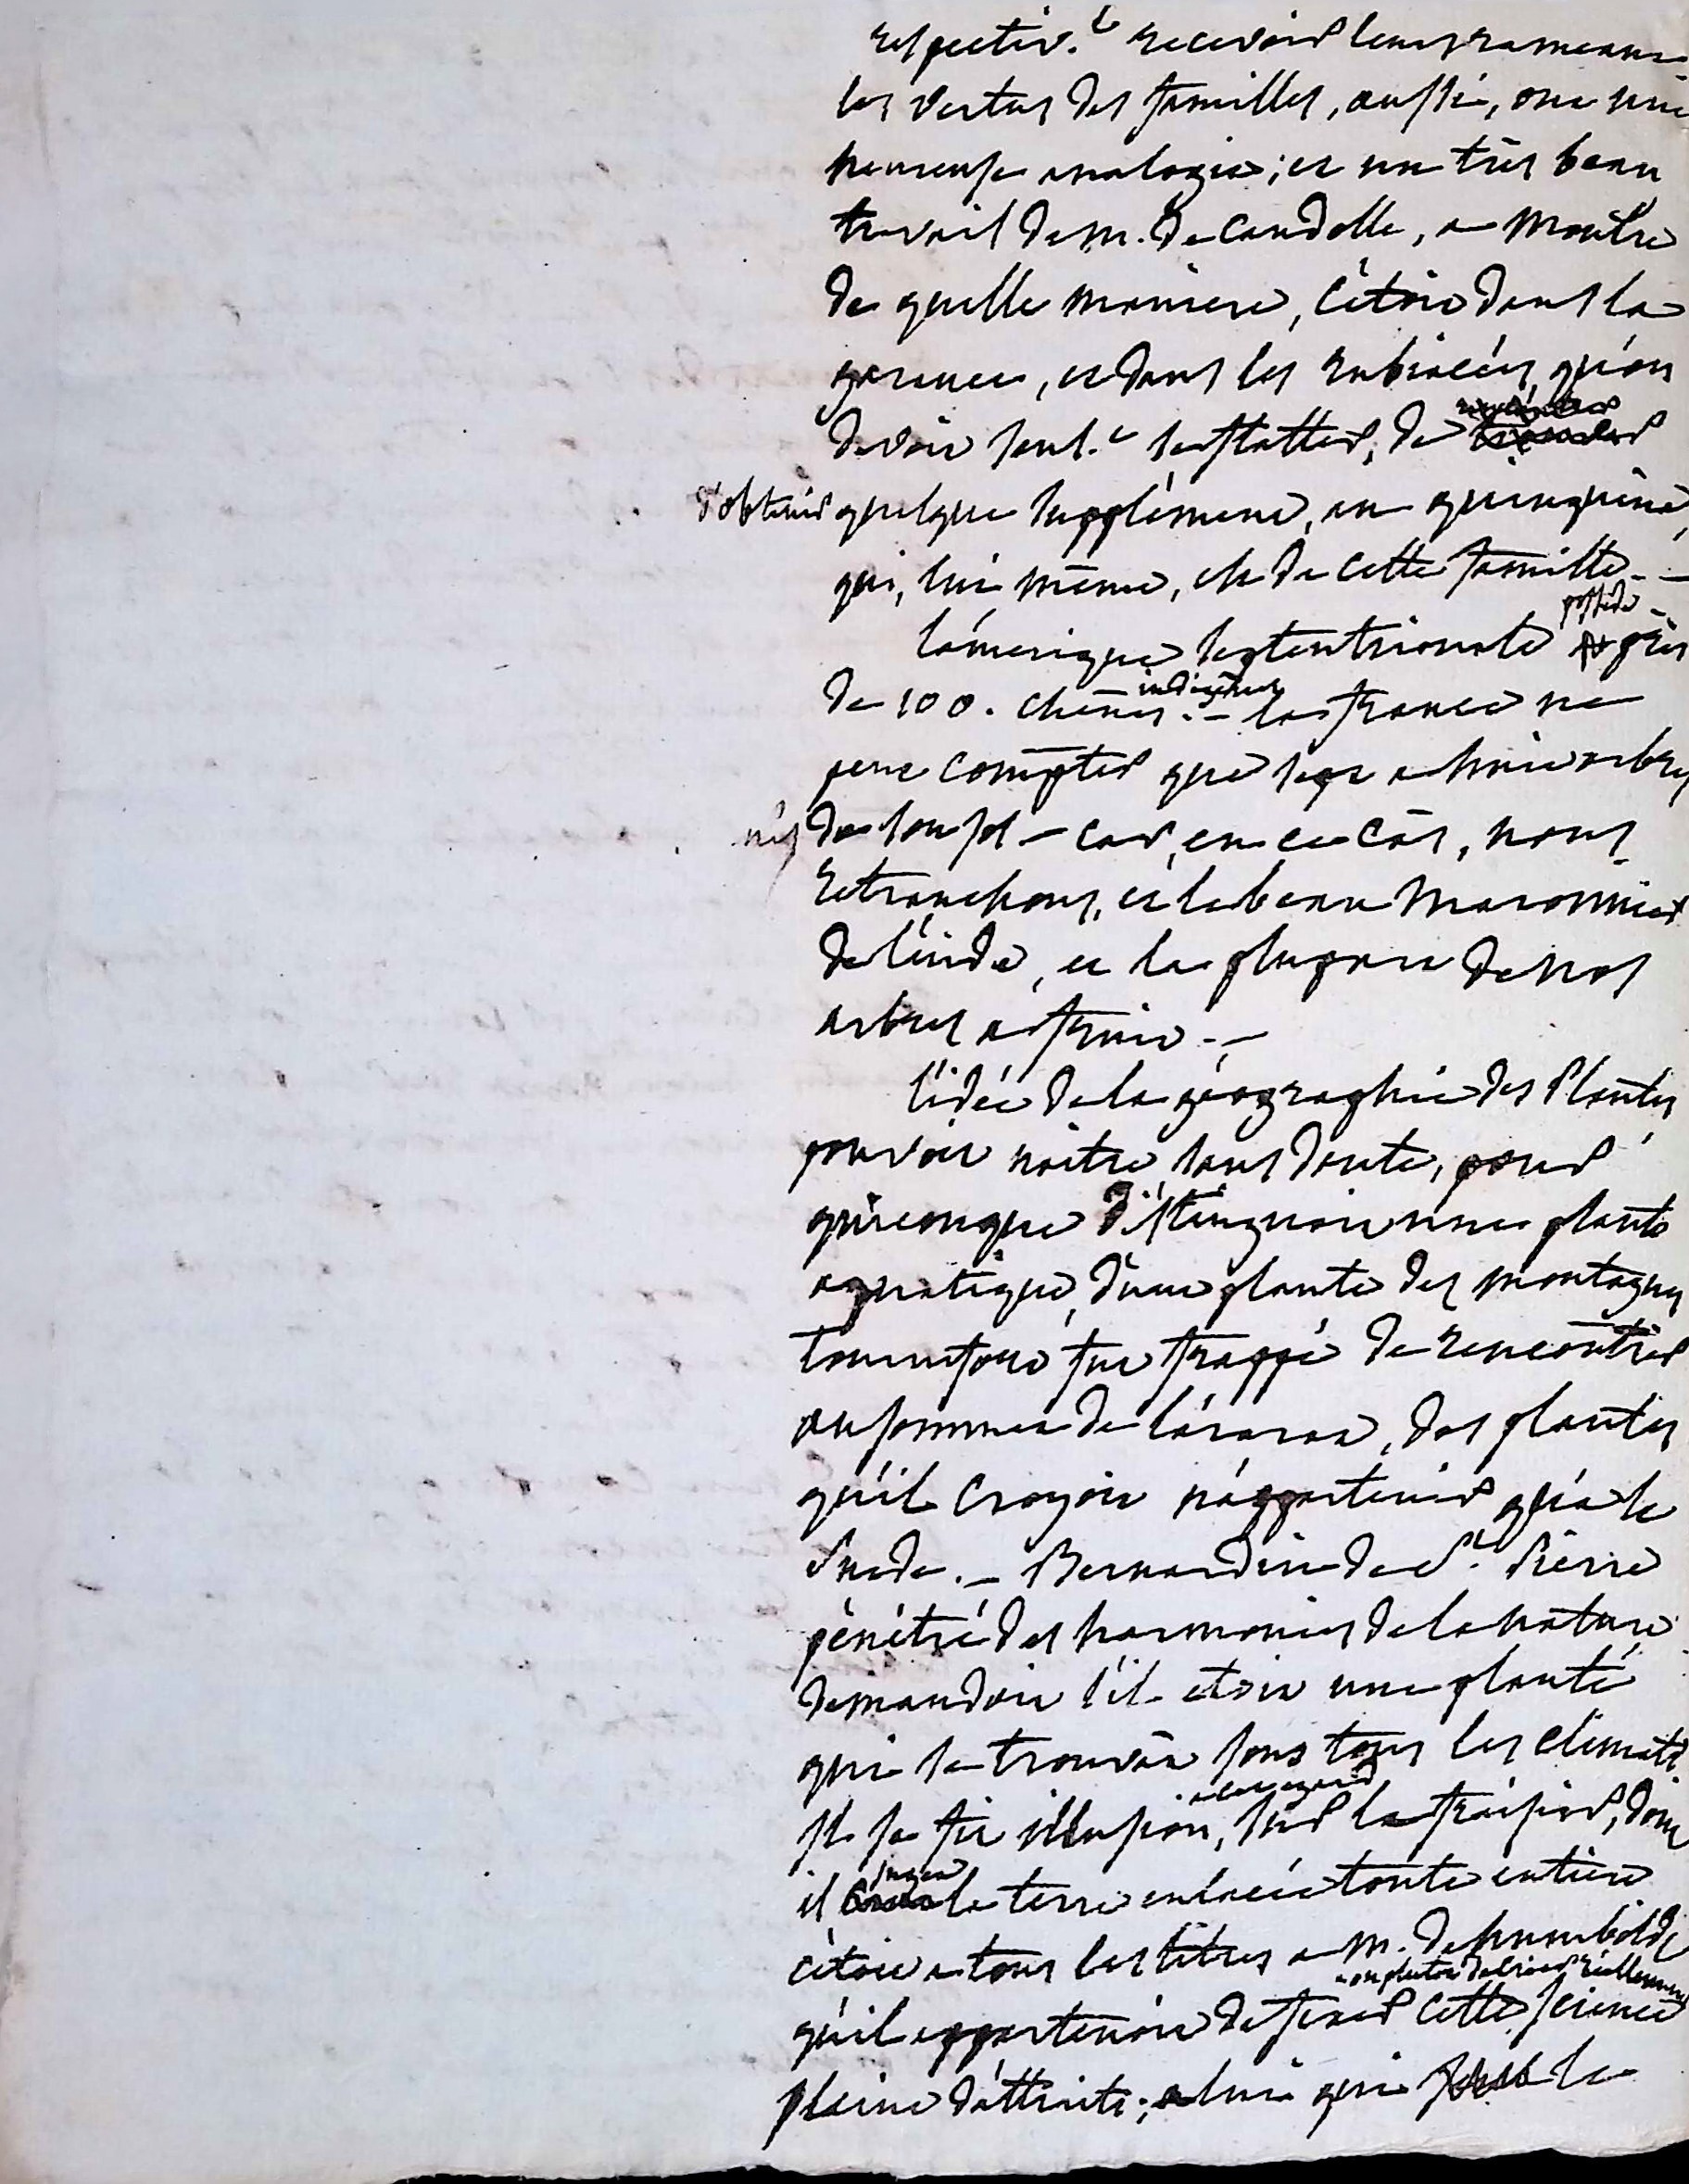 respectiv.t recevoir leurs rameaux.
les vertus des familles, aussi, ont une
heureuse analogie; et un très beau
travail de m. de Candolle, a montré
de quelle maniere, c'étoit dans la
garence, et dans les rubiacées, qu'on
devoit seul.t se flatter, de
d'obtenir quelque supplément, au quinquina,
qui, lui même, est de cette famille. —
l'amerique septentrionale possede près
de 100. chênes indigènes. — la france ne
peut compter que sept a huit arbres
nés de son sol — car, en ce cas, nous
retranchons, et le beau maronnier
de l'inde, et la plupart de nos
arbres a fruit. —
l'idée de la géographie des Plantes,
pouvoit naître sans doute, pour
quiconque distinguoit une plante
aquatique, d'une plante des montagnes
tournefort fut frappé de rencontrer
au sommet de l'ararat, des plantes
qu'il croyoit n'appartenir qu'a la
Suede. — Bernardin de St. Pierre
pénétré des harmonies de la nature
demandoit s'il etoit une plante
qui se trouvât sous tous les climats
il se fit illusion, a cet egard, sur le fraisier, dont
il jugea la terre enlacée toute entiere
c'étoit a tous les titres a m. de humboldt
qu'il appartenoit de fixer ou plutot de créer réellement cette science
pleine d'attraits; a lui qui la